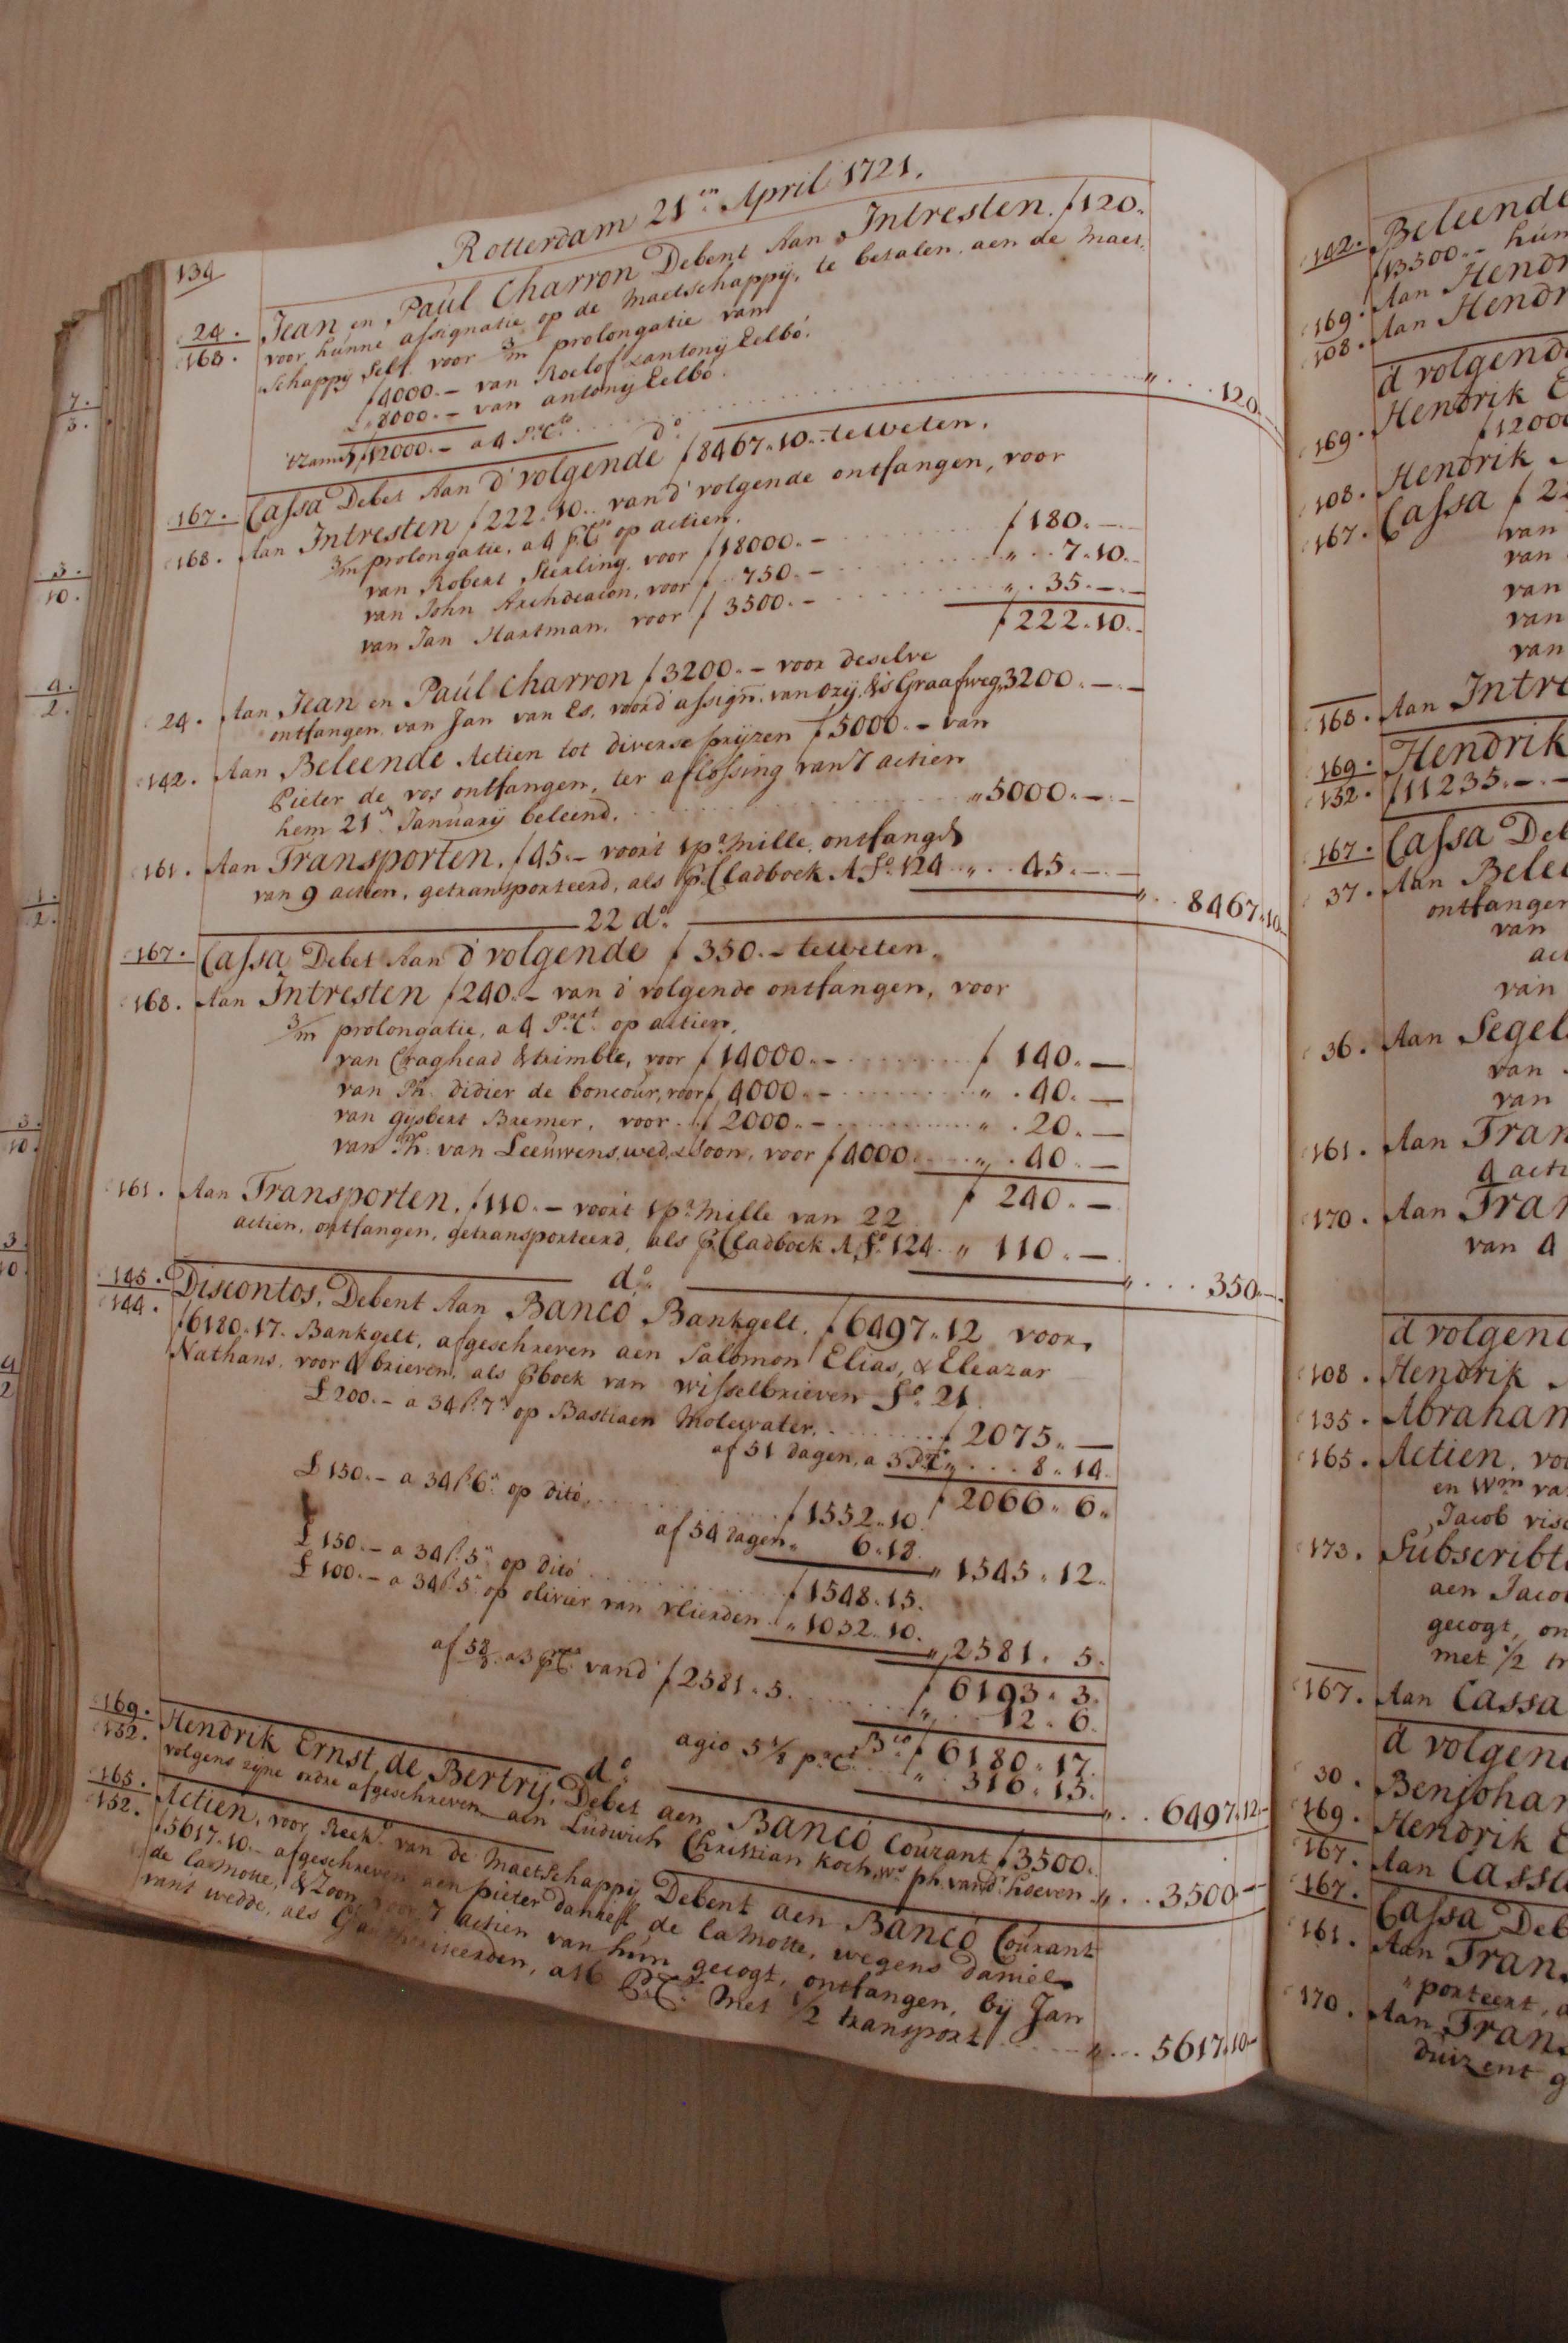 134
Rotterdam 21en April 1721.
24. Jean en Paúl Charron Debent Aan Intresten. f120.
168. voor húnne assignatie op de Maetschappij, te betalen, aen de Maet-
schappij self. voor 3/m prolongatie van
f4000.- van Roelof & antonij Eelbo.
„ 8000.- van antonij Eelbo.
tzamen f12000.- a 4 P.Cto „ 120.
do
167. Cassa Debet Aan d'volgende f8467.10.- teweten.
168. Aan Intresten f222.10.. van d'volgende ontfangen, voor
3/m prolongatie, a 4 P.Cto op actien.
van Robert Sterling, voor f18000.- f180.-.-
van John Archdeacon, voor f 750.- „ 7.10.-
van Jan Hartman, voor f3500.- „ 35.-.-
f222.10.-
24. Aan Jean en Paúl Charron f3200.- voor deselve
ontfangen van Jan van Es, voor d'assign. van Ozij & 's Graafweg „3200.-.-
142. Aan Beleende Actien tot diverse prijzen f5000.- van
Pieter de vos ontfangen, ter aflossing van 7 actien
hem 21en January beleend. „5000.-.-
161. Aan Transporten, f45.- voor't 1 pr Mille, ontfangen
van 9 actien, getransporteerd, als p. Cladboek A fo. 124 „ 45.-.-
„ 8467.10.-
22 do.
167. Cassa Debet Aan d'volgende f 350.- teweten.
168. Aan Intresten f240.- van d'volgende ontfangen, voor
3/m prolongatie, a 4 P.Ct. op actien.
van Craghead & trimble, voor f14000.- f 140.-
van Ph. didier de boncour, voor f 4000.- „ 40.-
van gijsbert Bremer, voor f 2000.- „ 20.-
van Ph. van Leeuwens, wed. & Soon, voor f4000. „ 40.-
f 240.-
161. Aan Transporten, f110.- voor't 1 pr Mille van 22
actien, ontfangen, getransporteerd, als p. Cladboek A fo. 124. „ 110.-
„ 350.-
do.
145. Discontos, Debent Aan Banco Bankgelt. f6497.12 voor
144. f6180.17. Bankgelt, afgeschreven aen Salomon Elias, & Eleazar
Nathans, voor 4 brieven, als p boek van wisselbrieven fo. 21.
£200.- a 34 ß. 7 op Bastiaen Molewater. f 2075.-
af 51 dagen, a 3 P.Ct „ 8.14.
f 2066.6.
£150.- a 34 ß. 6. op dito, f1552.10.
af 54 dagen. 6.18.
„ 1545.12.
£150.- a 34 ß. 5. op dito f1548.15.
£100.- a 34 ß. 5. op olivier van vlierden „ 1032.10.
„ 2581.5.
f 6193.3.
af 58/d. a 3 P.Ct. vand f2581.5. „ 12.6.
Bco. f 6180.17.
agio 5 1/8 p.Ct. „ 316.15.
„ 6497.12.-
do.
169. Hendrik Ernst de Bertrij, Debet aen Banco Courant f3500.
152. volgens zijne ordre afgeschreven aen Ludwich Christian Koch, wo. ph. vandr. hoeven „ 3500.-
165. Actien, voor Reekg van de Maetschappij Debent aen Banco Courant
152. f5617.10.- afgeschreven aen pieter dankeff de la Motte, wegens daniel
de la Motte, & Zoon, voor 7 actien van hun gecogt, ontfangen, bij Jan
vant wedde, als met 1/2 transport „ 5617.10.-
142. Beleende
f13500.- hun
169. Aan Hendr
108. Aan Hendr
d volgend
169. Hendrik E
f12000
108. Hendrik
167. Cassa f 22
van
van
van
van
van
168. Aan Intre
169. Hendrik
152. f11235.-.-
167. Cassa Deb
37. Aan Belee
ontfangen
van
act
van
36. Aan Segel
van
van
161. Aan Tran
4 acti
170. Aan Tran
van 4
d volgend
108. Hendrik
135. Abraham
165. Actien, vo
en Wm va
Jacob visc
173. Subscribt
aen Jaco
gecogt, on
met 1/2 tr
167. Aan Cassa
d volgen
30. Benjohan
169. Hendrik E
167. Aan Cassa
167. Cassa Deb
161. Aan Trans
porteert, a
170. Aan Trans
duizent g